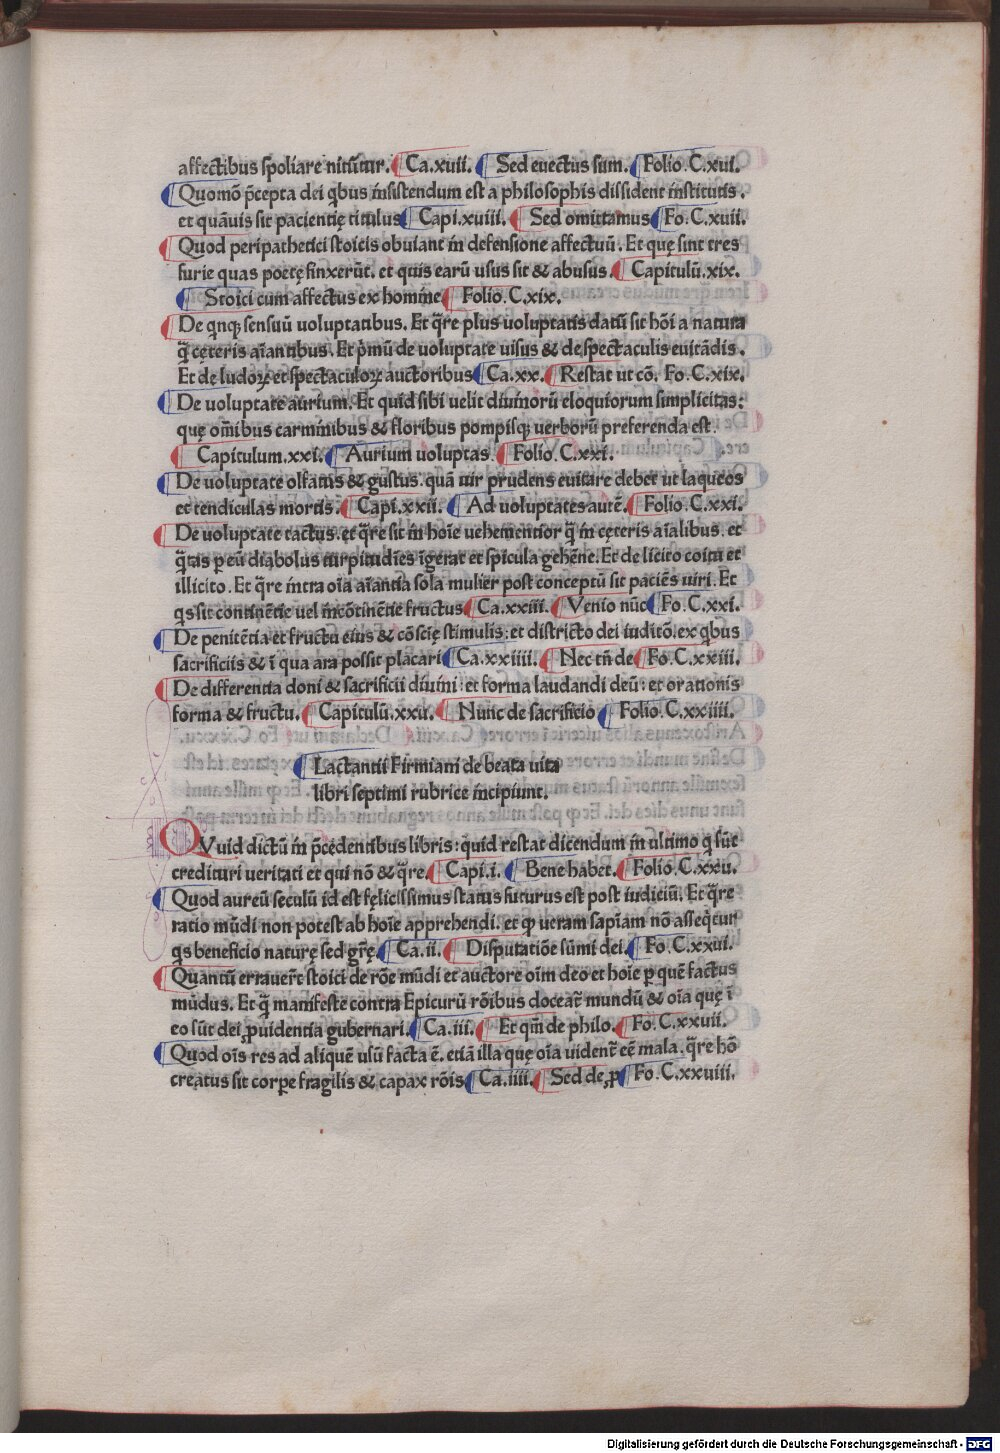 affectibus spoliare nitũtur. Ca.xvii. Sed euectus sum. Folio.C.xvi.
Quomõ p̃cepta dei q̃bus insistendum est a philosophis dissident institutis.
et quãuis sit pacientię titulus Capi.xviii. Sed omittamus Fo.C.xvii.
Quod peripathetici stoicis obuiant in defensione affectuũ. Et quę sint tres
furie quas poetę finxerũt. et quis earũ usus sit & abusus. Capitulũ.xix.
Stoici cum affectus ex homine Folio.C.xix.
De qnqꝫ sensuũ uoluptatibus. Et q̃re plus uoluptatis datũ sit hõi a natura
q̃ cęteris aĩantibus. Et p̃mũ de uoluptate uisus & de spectaculis euitãdis.
Et de ludoꝝ et spectaculoꝝ auctoribus Ca.xx. Restat ut cõ. Fo.C.xix.
De uoluptate aurium. Et quid sibi uelit diuinorũ eloquiorum simplicitas:
quę om̃ibus carminibus & floribus pompisqꝫ uerborũ preferenda est.
Capitulum.xxi. Aurium uoluptas. Folio.C.xxi.
De uoluptate olfatus & gustus. quã uir prudens euitare debet ut laqueos
et tendiculas mortis. Capi.xxii. Ad uoluptates autẽ. Folio.C.xxi.
De uoluptate tactus. et q̃re sit in hoĩe uehementior q̃ in cęteris aĩalibus. et
q̃tas p eũ diabolus turpitudĩes ĩgerat et spicula gehẽne. Et de licito coitu et
illicito. Et q̃re intra oĩa aĩantia sola mulier post conceptũ sit paciẽs uiri. Et
qs sit continẽtie uel incõtinẽtie fructus Ca.xxiii. Venio nũc Fo.C.xxi.
De penitẽtia et fructu eius & cõscię stimulis: et districto dei iuditõ. ex q̃bus
sacrificiis & ĩ qua ara possit placari Ca.xxiiii. Nec tñ de Fo.C.xxiii.
De differentia doni & sacrificii diuini: et forma laudandi deũ: et orationis
forma & fructu. Capitulũ.xxv. Nunc de sacrificio Folio.C.xxiiii.
Lactantii Firmiani de beata uita
libri septimi rubrice incipiunt.
QVuid dictũ in p̃cedentibus libris: quid restat dicendum in ultimo q̃ sũt
credituri ueritati et qui nõ & q̃re. Capi.i. Bene habet. Folio.C.xxv.
Quod aureũ seculũ id est fęlicissimus status futurus est post iudiciũ. Et q̃re
ratio mũdi non potest ab hoĩe apprehendi. et ꝙ ueram sapĩam nõ asseq̃tur
qs beneficio naturę sed grę̃. Ca.ii. Disputatiõe sũmi dei. Fo.C.xxvi.
Quantũ errauer̃t stoici de rõe mũdi et auctore oĩm deo et hoĩe ꝑ quẽ factus
mũdus. Et q̃ manifeste contra Epicurũ rõibus doceat̃ mundũ & oĩa quę ĩ
eo sũt dei ꝓuidentia gubernari. Ca.iii. Et qm̃ de philo. Fo.C.xxvii.
Quod oĩs res ad aliquẽ usũ facta ẽ. etiã illa quę oĩa uident̃ eẽ mala. q̃re hõ
creatus sit corpe fragilis & capax rõis Ca.iiii. Sed de ꝓ Fo.C.xxviii.
Digitalisierung gefördert durch die Deutsche Forschungsgemeinschaft - DFG